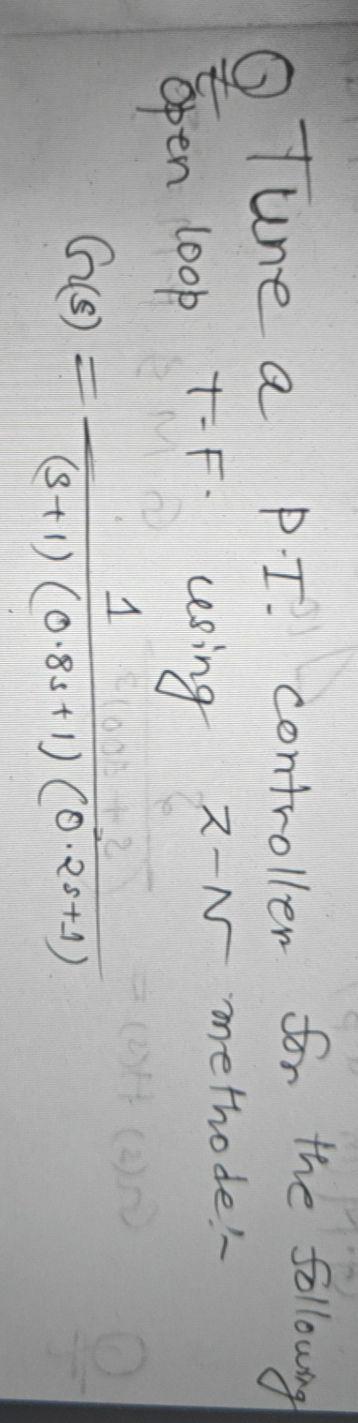 Q Tune a P.I. controller for the following
open loop T.F. using Z-N methode:-
G(s) = 1
(s+1) (0.8s+1) (0.2s+1)